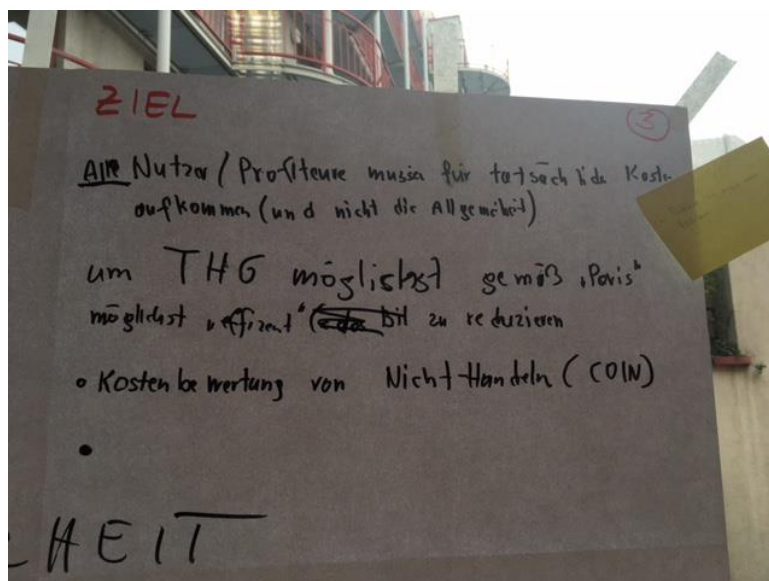 ZIEL
3
Alle Nutzer / Profiteure müssen für tatsächliche Kosten
aufkommen (und nicht die Allgemeinheit)
um THG möglichst gemäß „Paris“
möglichst „effizient“ ( zu reduzieren
• Kostenbewertung von Nicht-Handeln (COIN)
•
HEIT